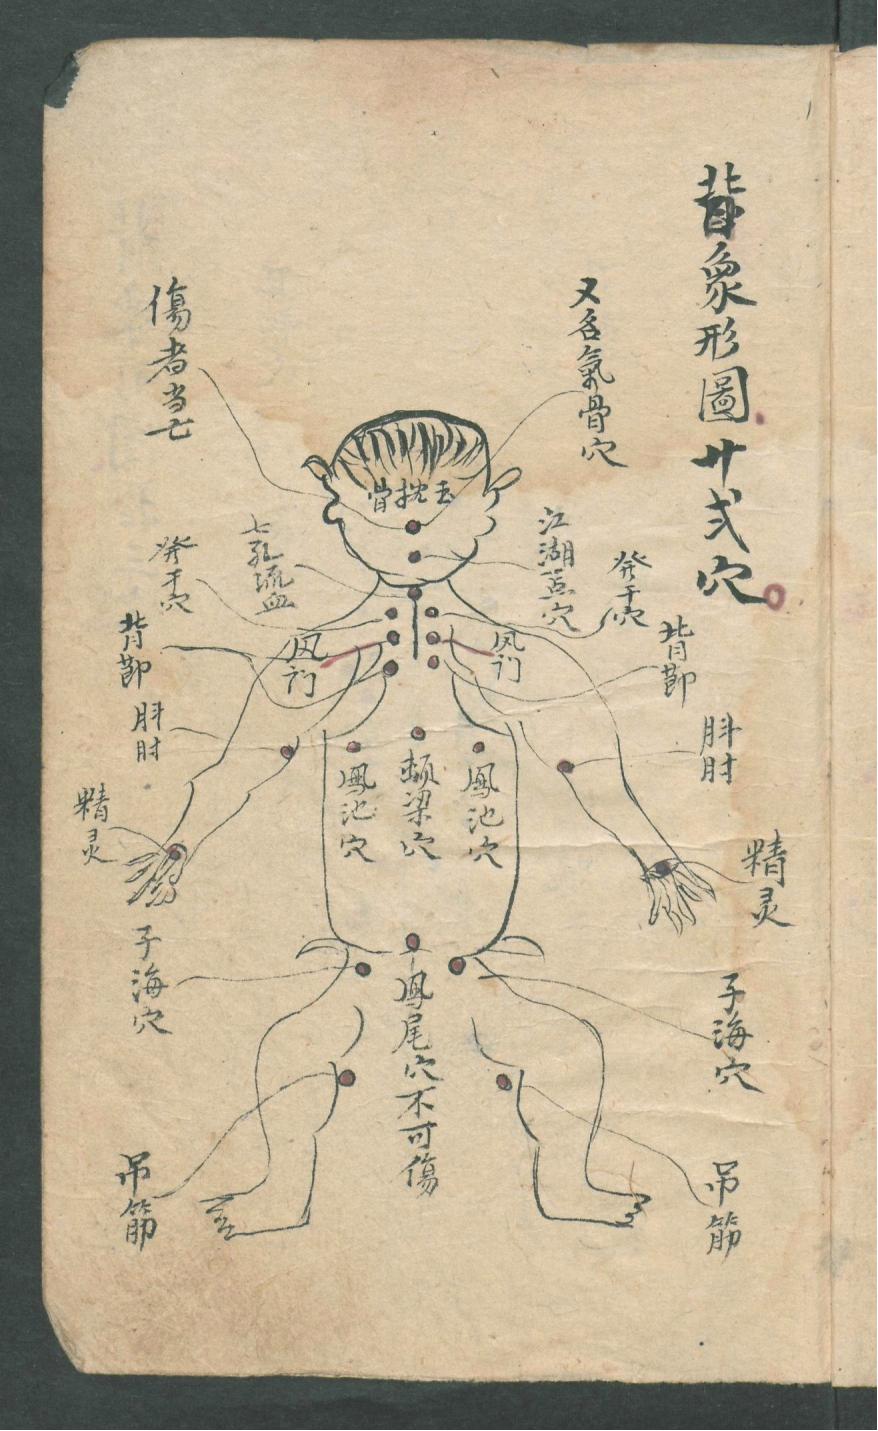 背象形圖廿弍穴
又名氣骨穴
傷者当亡
骨枕玉
江湖
穴
發干穴
七孔流血
發干穴
背節
背節
风门
风门
肘
肘
鳳池穴
梁穴
鳳池穴
精灵
精灵
子海穴
子海穴
鳳尾穴不可傷
吊筋
吊筋